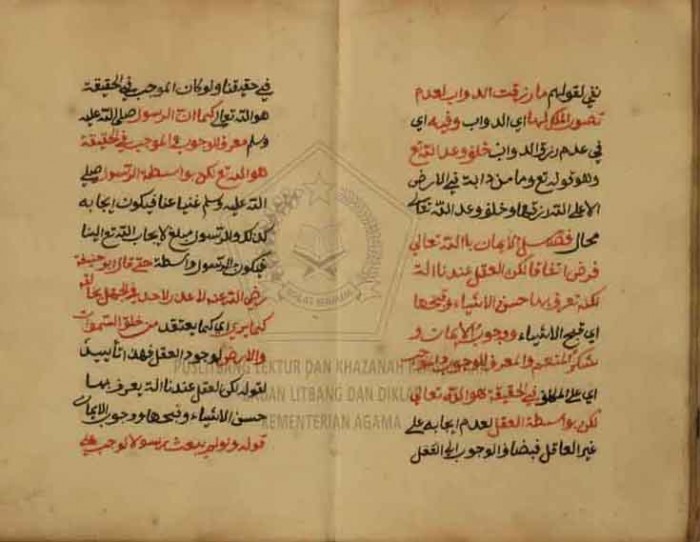 نفي لقولهم ما رزقت الدواب لعدم
تصور الملك لها اي الدواب وفيه اي
في عدم رزق الدواب خلف وعد الله تع
وهو قوله تع وما من دابة في الارض
الا على الله رزقها وخلف وعد الله تعالى
محال فصل الايمان بالله تعالى
فرض اتفاقا لكن العقل عندنا الة
لكنه تعرف بها حسن الاشياء وقبحها
اي قبح الاشياء ووجوب الايمان و
شكر المنعم والمعرف للوجوب والموجب
اي على الخلق في الحقيقة هو الله تعالى
لكن بواسطة العقل لعدم ايجابه على
غير العاقل فيضاف الوجوب الى العقل
في حقيقنا ولو كان الموجب في الحقيقة
هو الله تعالى كما ان الرسول صلى الله عليه
وسلم معرف للوجوب والموجب في الحقيقة
هو الله تع لكن بواسطة الرسول صلى
الله عليه وسلم غنيا عنا فيكون ايجابه
كذلك والرسول مبلغ لايجاب الله تع الينا
فيكون الرسول واسطة حتى قال ابو حنيفة
رضي الله عنه لا عذر لاحد في الجهل بخالقه
كما يرى اي كما يعتقد من خلق السموات
والارض لوجود العقل فهذا تأييد
لقوله لكن العقل عندنا الة يعرف بها
حسن الاشياء وقبحها ووجوب الايمان
قوله ولو لم يبعث رسولا لوجب على
PUSLITBANG LEKTUR DAN KHAZANAH
BADAN LITBANG DAN DIKLAT
KEMENTERIAN AGAMA